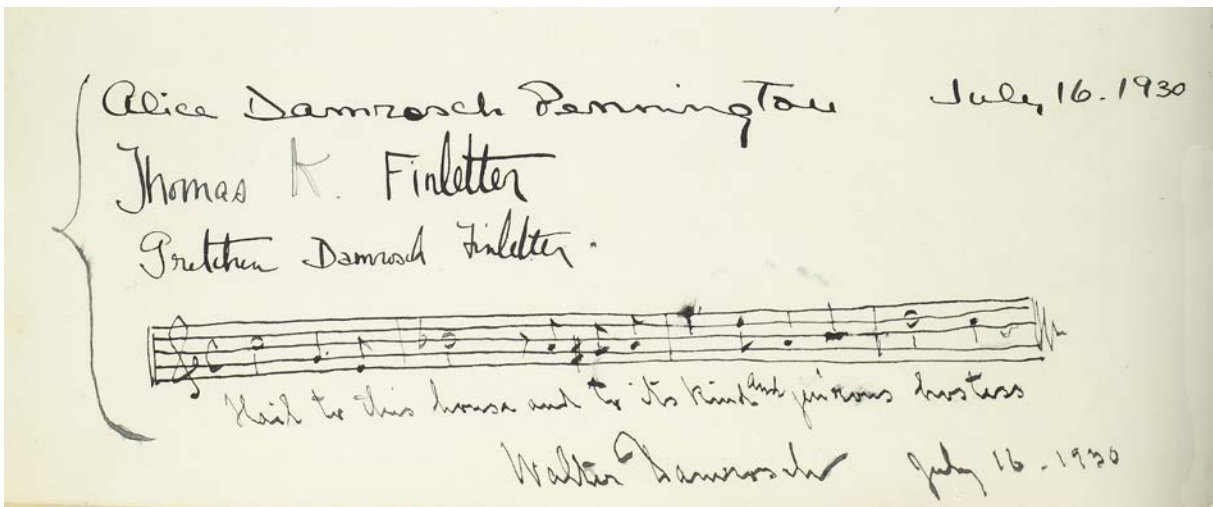 Alice Damrosch Pennington July 16. 1930
Thomas K. Finletter
Gretchen Damrosch Finletter.
Hail to this house and to its kind and gen'rous hostess
Walter Damrosch July 16 - 1930